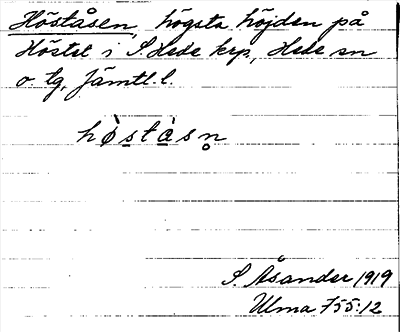 Höståsen, högsta höjden på
Höstet i S. Hede krp, Hede sn
o. tg, Jämtl. l.
hò̱stàsn̥
S. Åsander 1919
Ulma 755:12